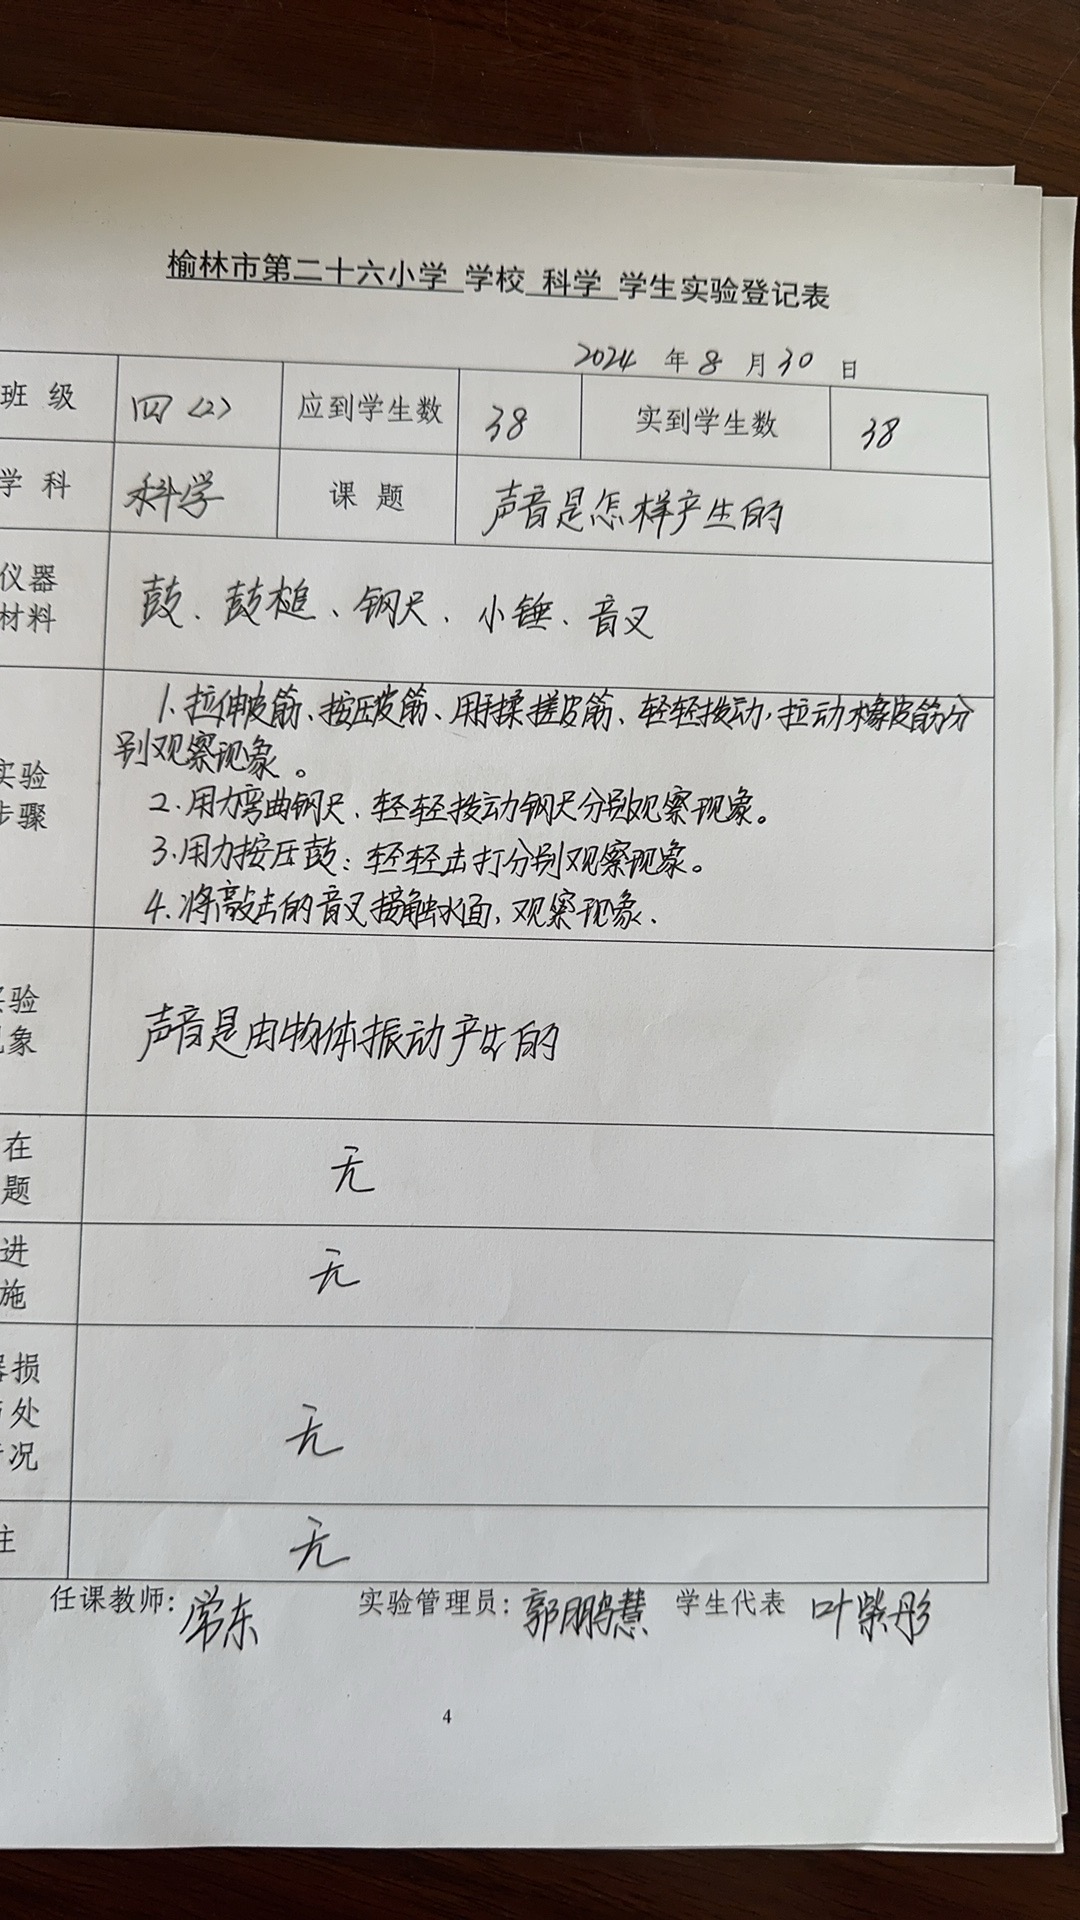 榆林市第二十六小学 学校 科学 学生实验登记表
2024 年 8 月 30 日
班 级 四(2) 应到学生数 38 实到学生数 38
学 科 科学 课 题 声音是怎样产生的
仪器
材料
鼓、鼓槌、钢尺、小锤、音叉
1、拉伸皮筋、按压皮筋、用手揉搓皮筋、轻轻拨动,拉动橡皮筋分
别观察现象。
实验
步骤
2、用力弯曲钢尺、轻轻拨动钢尺分别观察现象。
3、用力按压鼓:轻轻击打分别观察现象。
4、将敲击的音叉接触水面,观察现象.
实验
现象
声音是由物体振动产生的
在
题
无
进
施
无
器损
处
情况
无
注 无
任课教师: 常东 实验管理员: 郭鹏慧 学生代表 叶紫彤
4